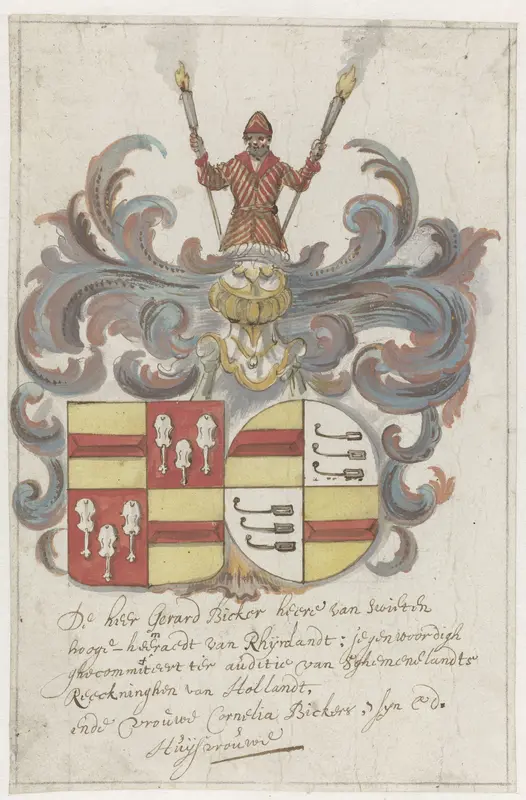 De heer Gerard Bicker heere van Swieten
hooge-heemraedt van Rhijnlandt; jegenwoordigh
ghecommitteert ter auditie van Sghemenelandts
Reeckninghen van Hollandt,
ende vrouwe Cornelia Bickers, syn Ed.
Huysvrouwe